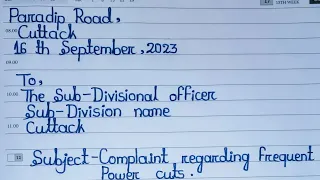 Parradip Road,
Cuttack
16 th September, 2023
To,
The Sub-Divisional officer
Sub-Division name
Cuttack
Subject-Complaint regarding frequent
Power cuts.
08.00
09.00
10.00
11.00